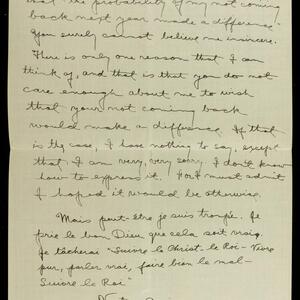 that "the probability of my not coming
back next year made a difference"
You surely cannot believe me insincere.
There is only one reason that I can
think of, and that is that you do not
care enough about me to wish
that your not coming back
would make a difference. If that
is the case, I have nothing to say, except
that I am very, very sorry. I don't know
how to express it. For I must admit
I hoped it would be otherwise.
Mais peut-être je suis trompée. Je
prie le bon Dieu que cela soit vrai.
Je tâcherai "Suivre le Christ-le Roi-Vivre
pur, parler vrai, faire bien le mal-
Suivre le Roi"